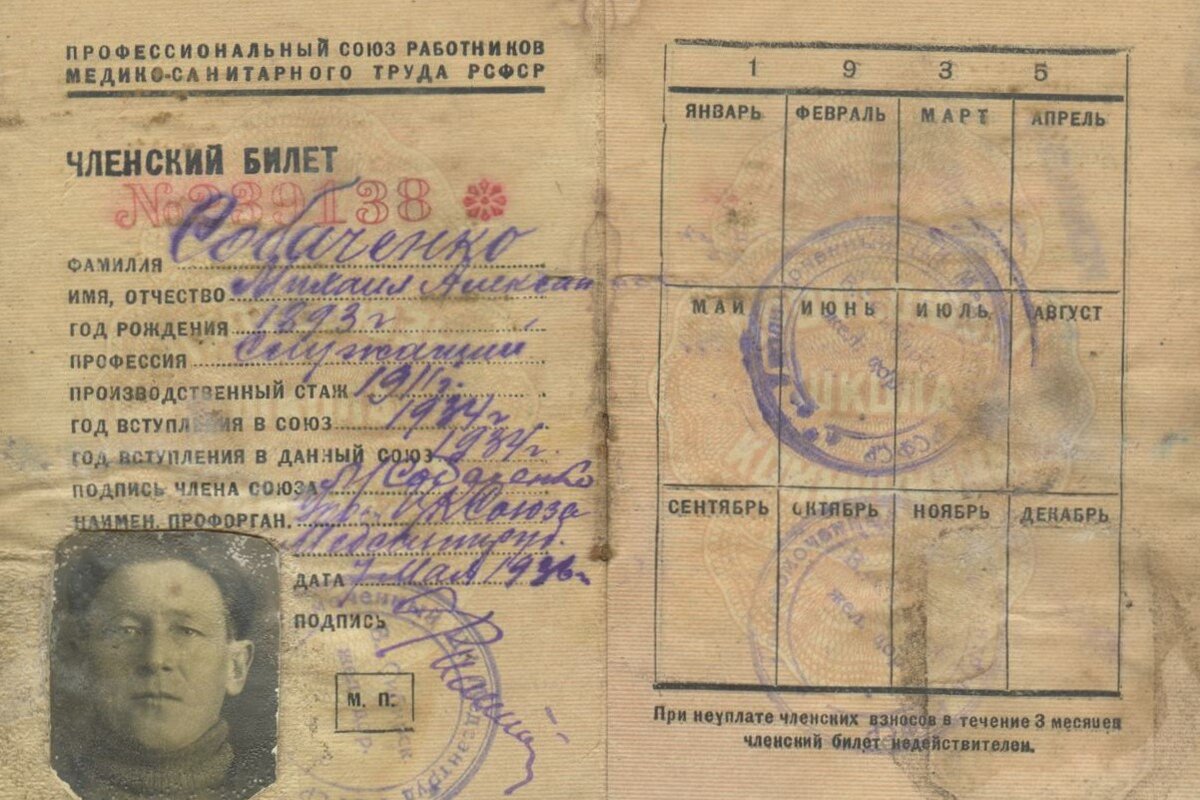 ПРОФЕССИОНАЛЬНЫЙ СОЮЗ РАБОТНИКОВ
МЕДИКО-САНИТАРНОГО ТРУДА РСФСР
ЧЛЕНСКИЙ БИЛЕТ
№ 239138
ФАМИЛИЯ Собаченко
ИМЯ, ОТЧЕСТВО Михаил Алексан
ГОД РОЖДЕНИЯ 1893 г
ПРОФЕССИЯ служащий
ПРОИЗВОДСТВЕННЫЙ СТАЖ 1911 г.
ГОД ВСТУПЛЕНИЯ В СОЮЗ 1934 г
ГОД ВСТУПЛЕНИЯ В ДАННЫЙ СОЮЗ 1934 г.
ПОДПИСЬ ЧЛЕНА СОЮЗА М Собаченко
НАИМЕН. ПРОФОРГАН. ЦК Союза
Медсантруд.
ДАТА 7 мая 1936 г
ПОДПИСЬ
М. П.
1 9 3 5
ЯНВАРЬ ФЕВРАЛЬ МАРТ АПРЕЛЬ
МАЙ ИЮНЬ ИЮЛЬ АВГУСТ
ШКОЛА
СЕНТЯБРЬ ОКТЯБРЬ НОЯБРЬ ДЕКАБРЬ
При неуплате членских взносов в течение 3 месяцев
членский билет недействителен.